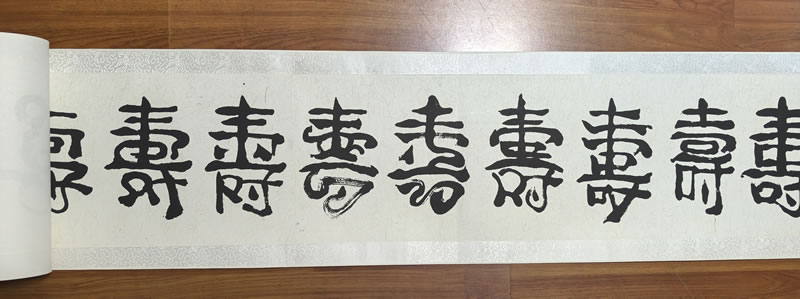 壽壽壽壽壽壽壽壽壽